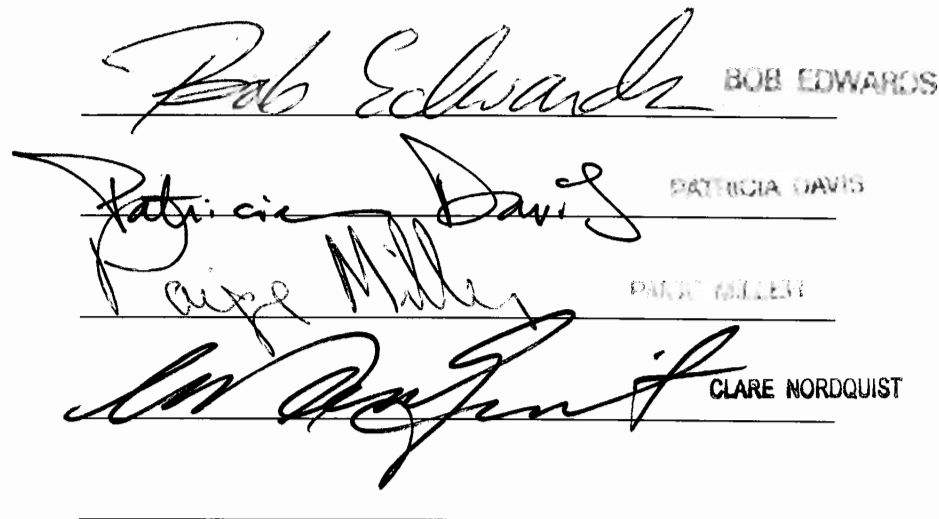 Bob Edwards BOB EDWARDS
Patricia Davis PATRICIA DAVIS
Paige Miller PAIGE MILLER
CLARE NORDQUIST